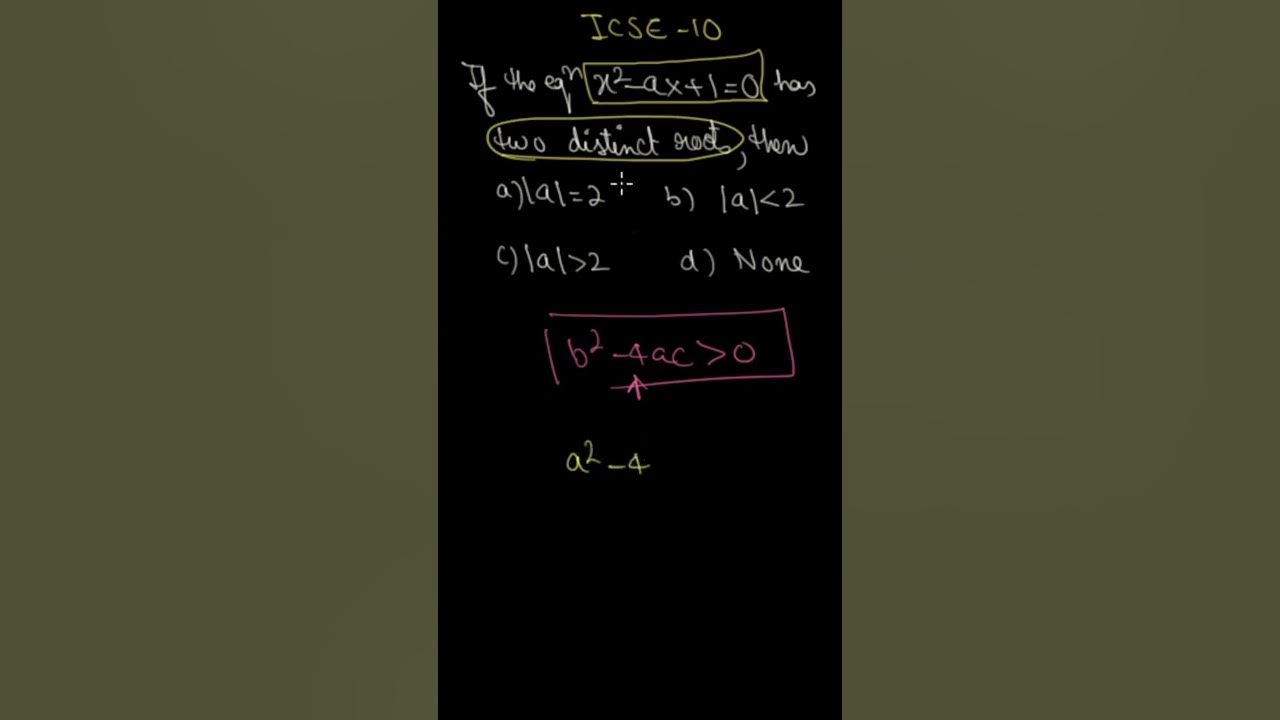 ICSE-10
If the eqn x²-ax+1=0 has
two distinct roots, then
a) |a|=2 b) |a|<2
c) |a|>2 d) None
b²-4ac>0
a²-4